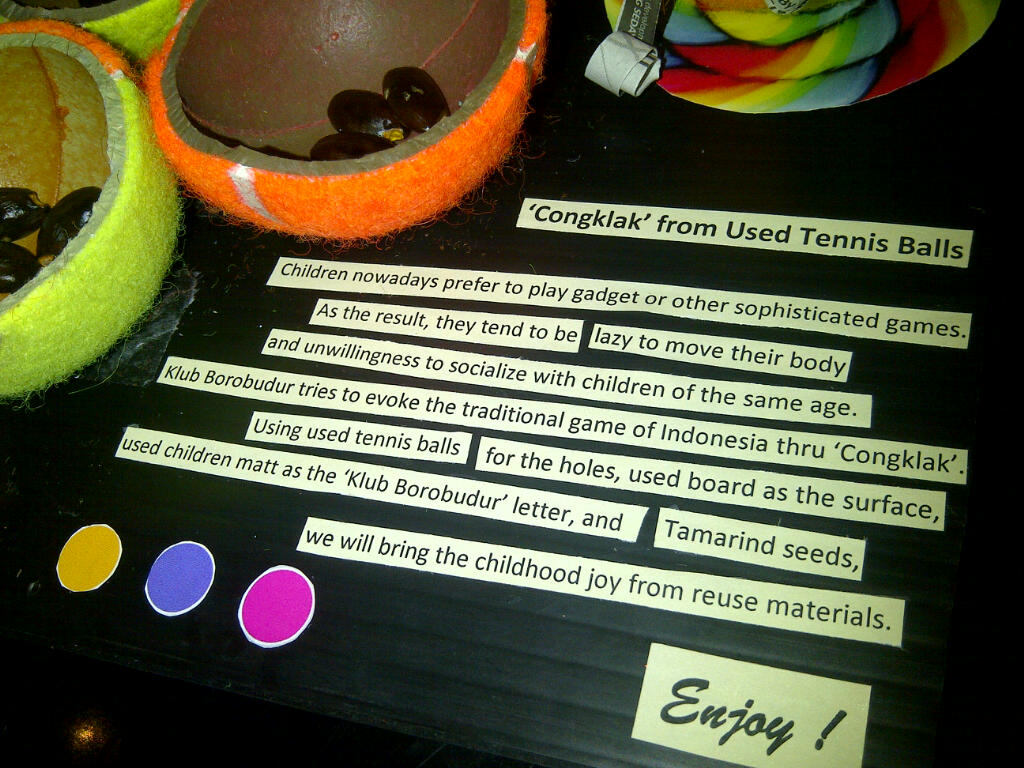 G SEDA
by
'Congklak' from Used Tennis Balls
Children nowadays prefer to play gadget or other sophisticated games.
As the result, they tend to be lazy to move their body
and unwillingness to socialize with children of the same age.
Klub Borobudur tries to evoke the traditional game of Indonesia thru 'Congklak'.
Using used tennis balls for the holes, used board as the surface,
used children matt as the 'Klub Borobudur' letter, and Tamarind seeds,
we will bring the childhood joy from reuse materials.
Enjoy !